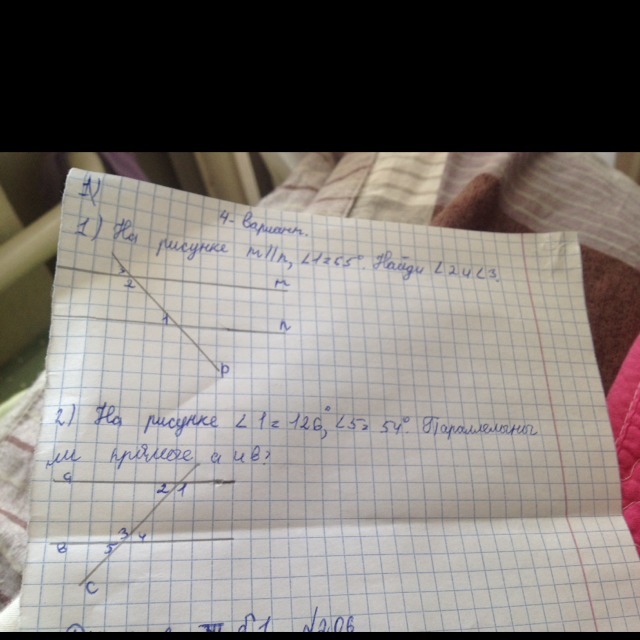 4 вариант.
1) На рисунке m||n, ∠1=65°. Найди ∠2 и ∠3.
3
2
m
1
n
p
2) На рисунке ∠1=126°, ∠5=54°. Параллельны
ли прямые a и b?
a
2 1
3 4
b
5
c